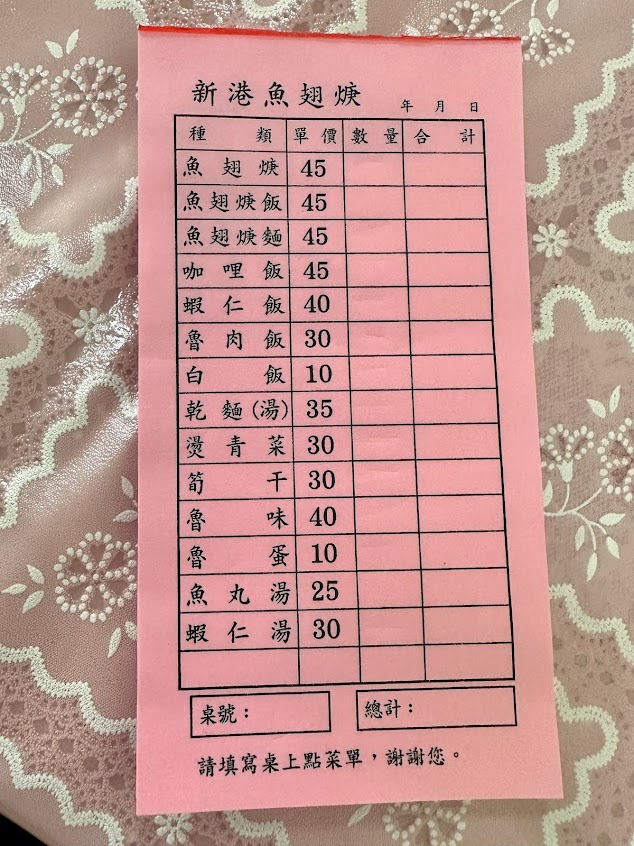 新港魚翅焿
年 月 日
種類 單價 數量 合計
魚翅焿 45
魚翅焿飯 45
魚翅焿麵 45
咖哩飯 45
蝦仁飯 40
魯肉飯 30
白飯 10
乾麵(湯) 35
燙青菜 30
筍干 30
魯味 40
魯蛋 10
魚丸湯 25
蝦仁湯 30
桌號： 總計：
請填寫桌上點菜單，謝謝您。